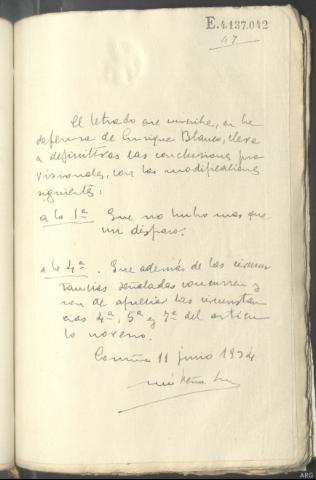 E.4.137.042
47
El letrado que suscribe, en la
defensa de Enrique Blanco, eleva
a definitivas las conclusiones pro
visionales, con las modificaciones
siguientes:
a la 1ª Que no hubo mas que
un disparo.
a la 4ª. Que además de las circuns
tancias señaladas concurren y
son de apreciar las circunstan
cias 4ª, 5ª y 7ª del articu
lo noveno.
Coruña 11 junio 1934
ARG